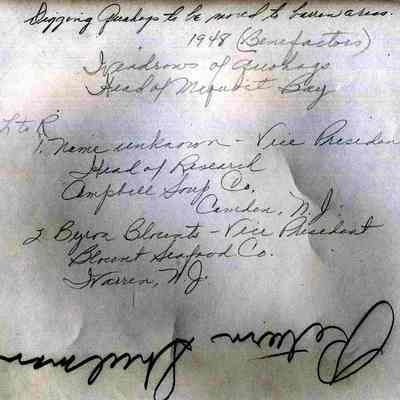 Digging Quahogs to be moved to barren areas.
1948 (Benefactors)
Windrows of Quahogs
Head of Bay
L to R
1. Name unknown - Vice Presiden
Head of Research
Campbell Soup Co.
Camden, N.J.
2. Byron Blounts - Vice President
Blount Seafood Co.
Warren, N.J.
Return